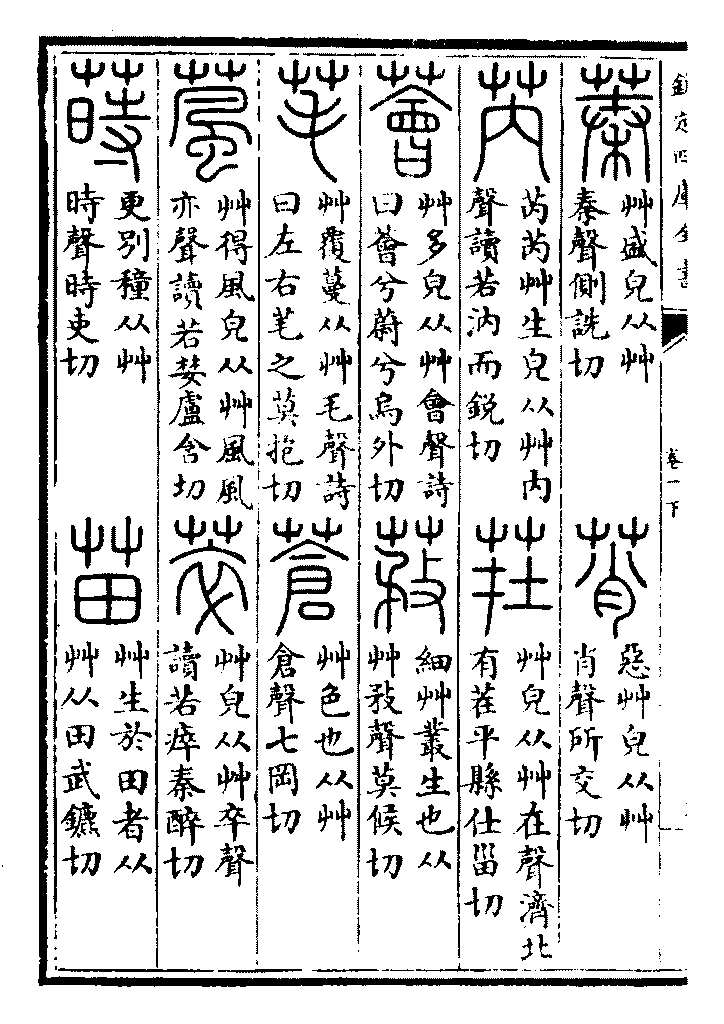 欽定四庫全書
卷一下
蓁
艸盛皃从艸
秦聲側詵切
莦
惡艸皃从艸
肖聲所交切
芮
芮芮艸生皃从艸内
聲讀若汭而鋭切
茬
艸皃从艸在聲濟北
有茬平縣仕甾切
薈
艸多皃从艸會聲詩
曰薈兮蔚兮烏外切
䓮
細艸叢生也从
艸敄聲莫候切
芼
艸覆蔓从艸毛聲詩
曰左右芼之莫抱切
蒼
艸色也从艸
倉聲七岡切
葻
艸得風皃从艸風風
亦聲讀若婪盧含切
萃
艸皃从艸卒聲
讀若瘁秦醉切
蒔
更別穜从艸
時聲時吏切
苗
艸生於田者从
艸从田武鑣切